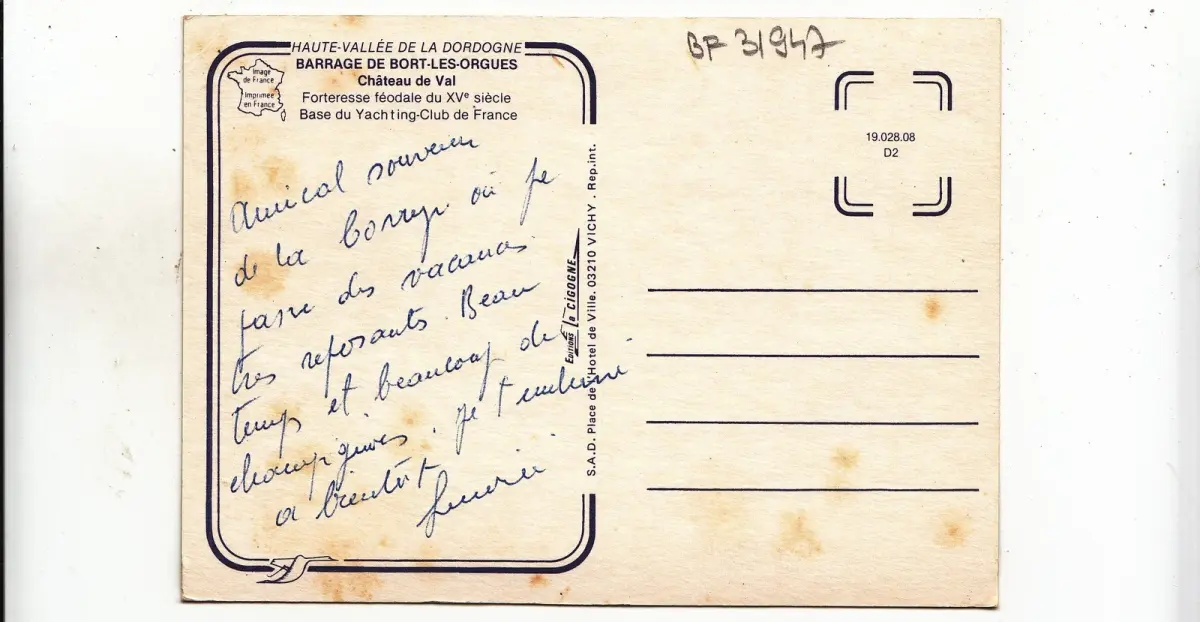 HAUTE-VALLÉE DE LA DORDOGNE
BARRAGE DE BORT-LES-ORGUES
Château de Val
Forteresse féodale du XVe siècle
Base du Yachting-Club de France
Image
de France
Imprimée
en France
Amical souvenir
de la où je
passe des vacances
très reposants. Beau
temps et beaucoup de
champignons. je t'
a bientôt
EDITIONS la CIGOGNE
S.A.D. Place de l'Hotel de Ville. 03210 VICHY . Rep.int.
BF 31947
19.028.08
D2